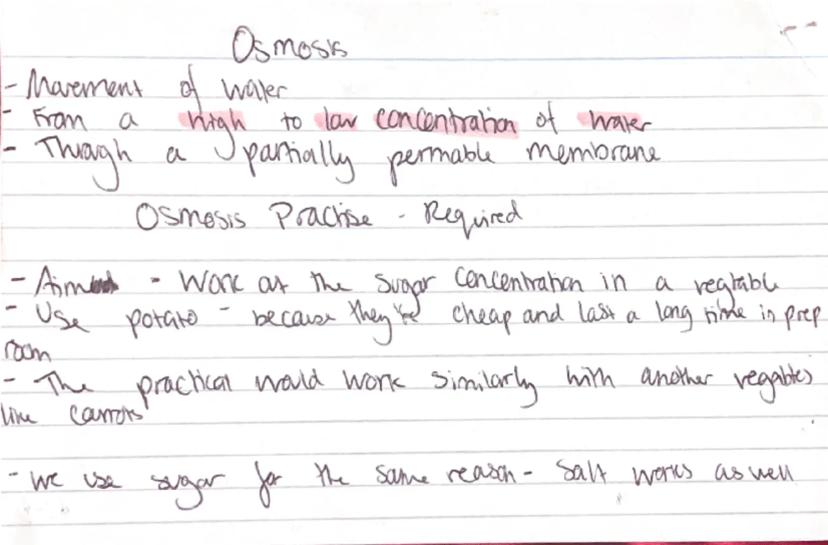 Osmosis
- Movement of water
- From a high to low concentration of water
- Through a partially permable membrane
Osmosis Practise - Required
- Aim - Work out the sugar concentration in a vegtable
- Use potato - because they're cheap and last a long time in prep
room
- The practical would work similarly with another vegables
like carrots
- We use sugar for the same reason - Salt works as well